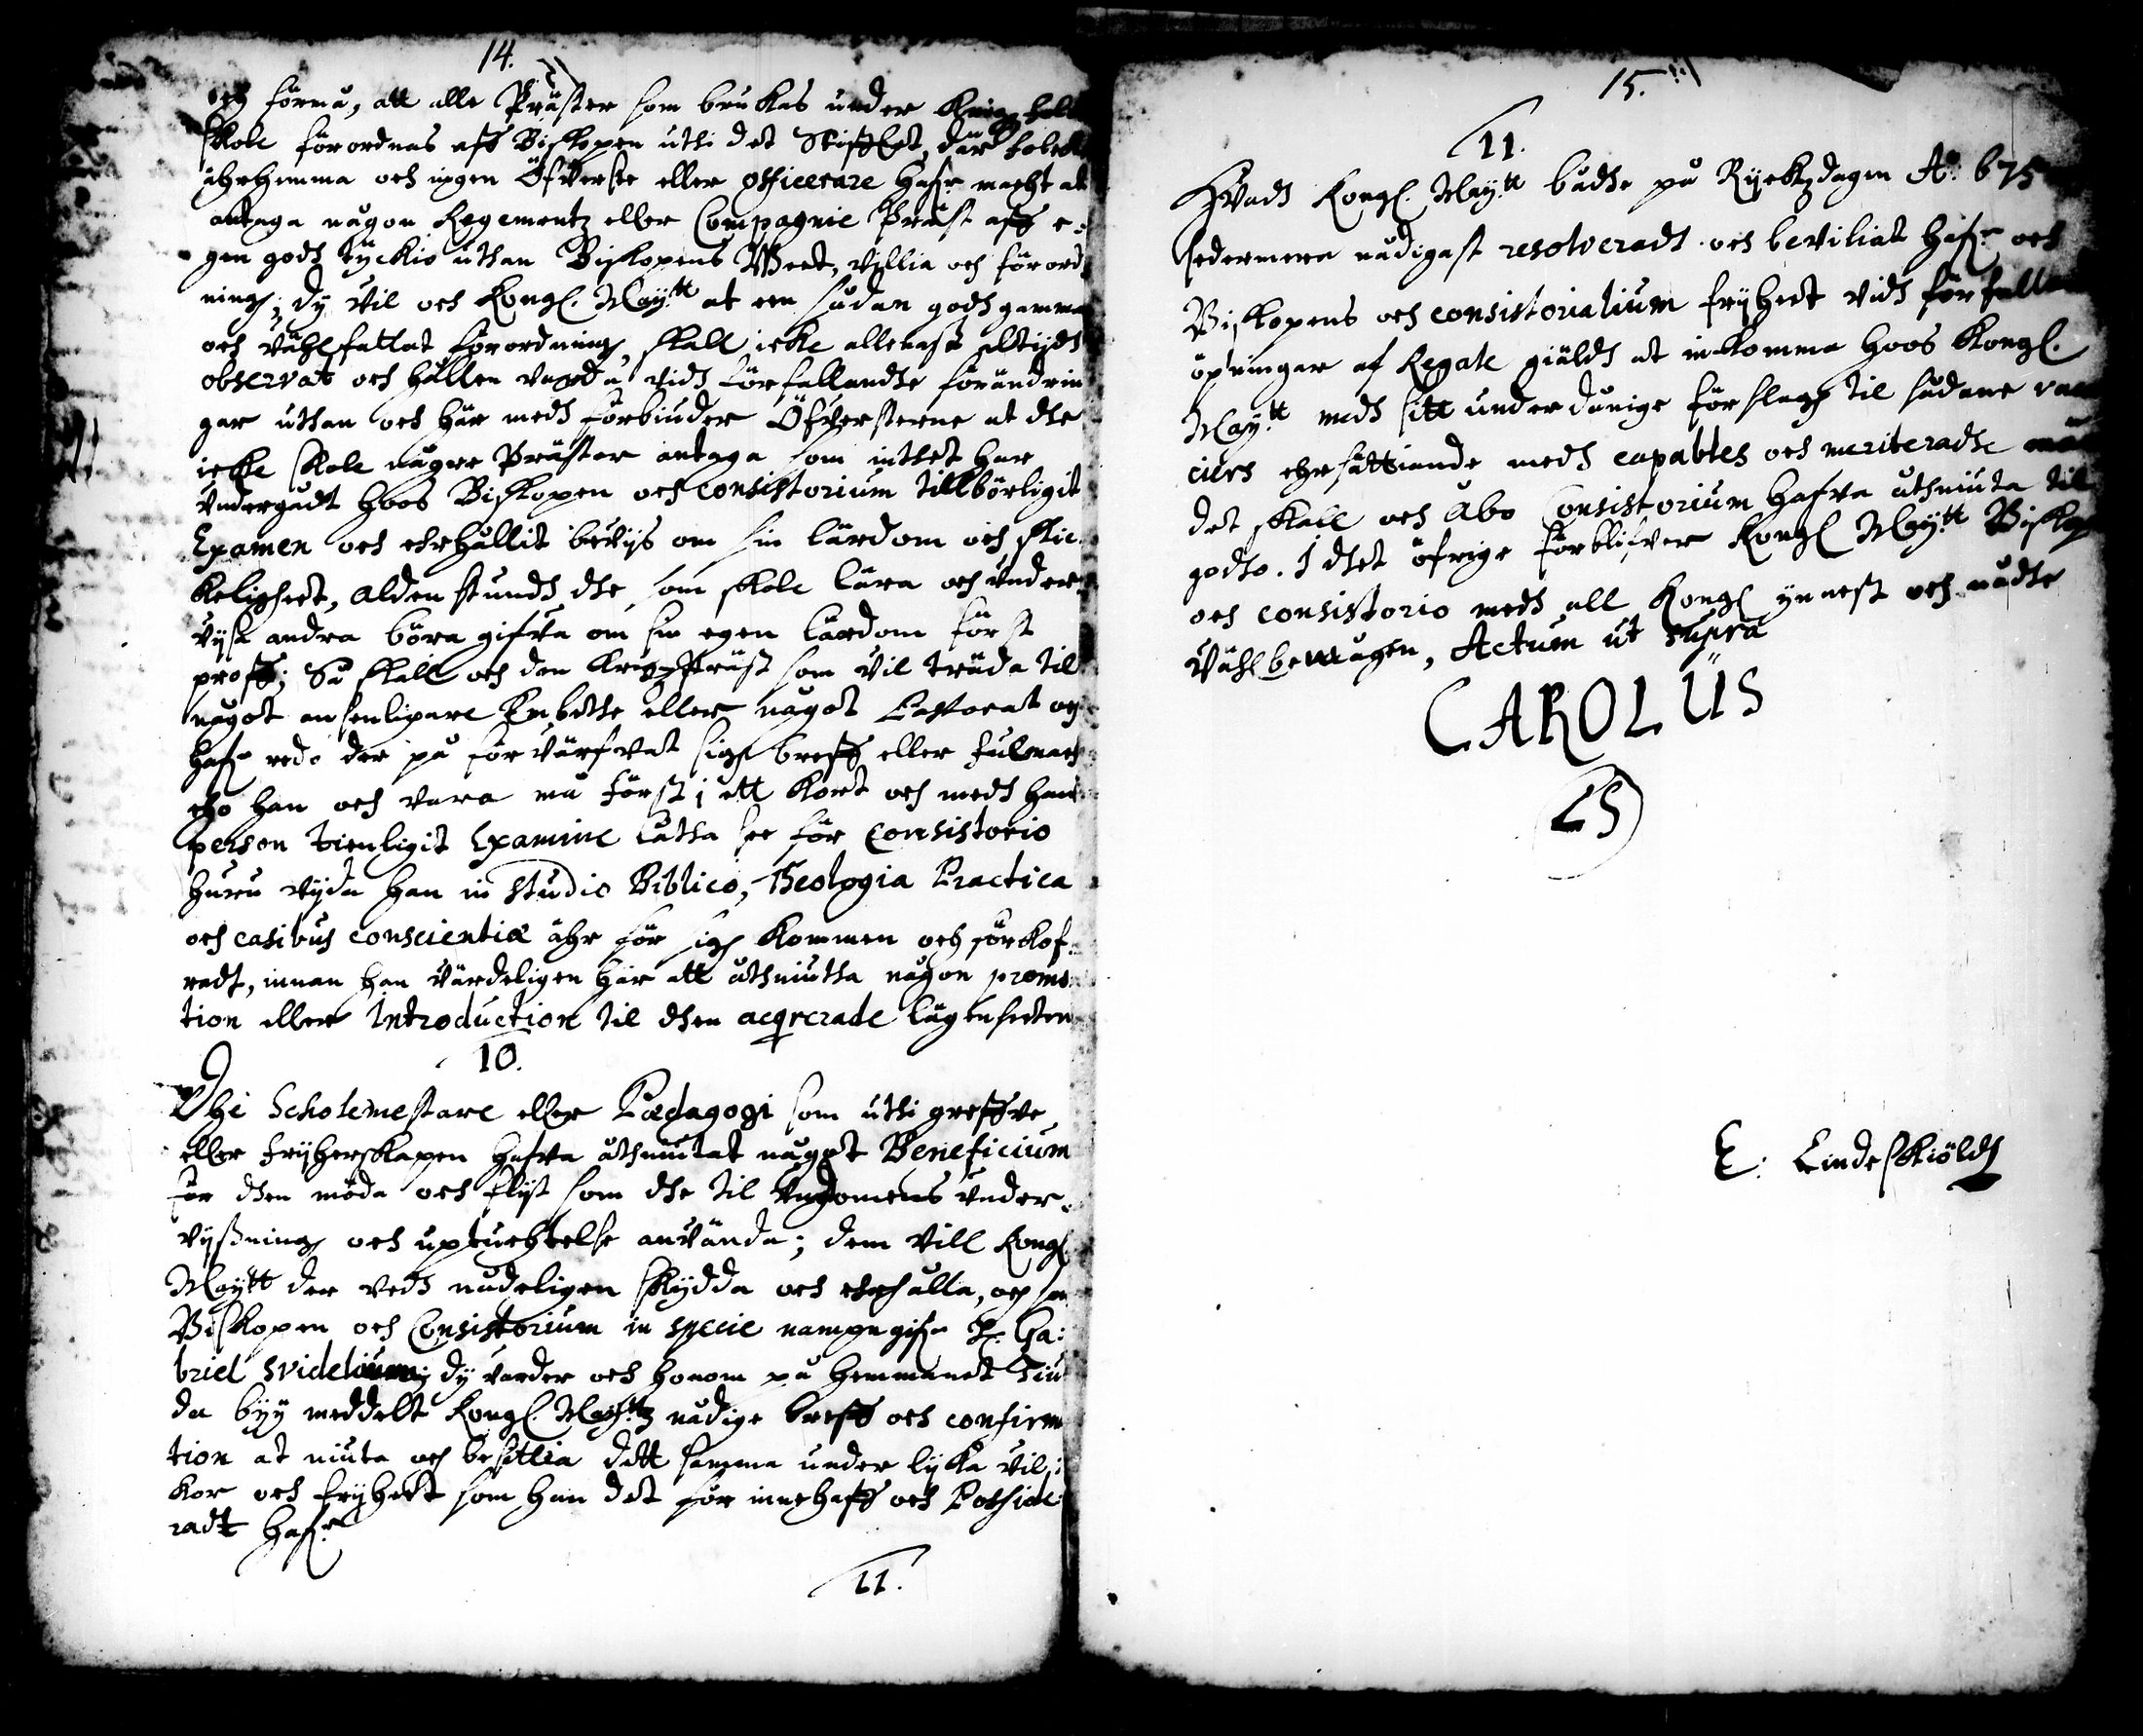 14.
och förmå, att alle Präster som brukas under
skole förordnas aff Biskopen uthi det Stifftet, där folcket
ährhemma och ingen Öfverste eller officerare hafr macht at
antaga någon Regementz eller Compagnie Präst aff e-
gen godh tyckio uthan Biskopens Weet, villia och förord-
ningh; dy vil och Kongl. Maytt at een sådan godh gammal
och vähl fattat förordningh, skall icke allenast altijdh
observat och hållen varda vidh förfallandhe förändrin
gar uthan och här medh förbiuder Öfversterne at dhe
icke skole någre Prästar antaga som inthet har
Undergådt hoos Biskopen och Consistorium tillbörligit
Examen och ehrhållit bevijs om sin lärdom och skic-
keligheet, alden stundh dhe som skole lära och under-
vijsa andra böra gifva om sin egen lärdom först
proff; Så skall och den Krigzpräst som vil träda til
något ansenligare Embethe eller något Pastorat och
hafr redo der på förvärfvat sigh breff eller fulmach
eho han och vara må först i ett kort och medh hans
person tienligit Examine låtha see för Consistorio
huru vijda han in studio Biblico, Theologia Practica
och casibus conscientiæ ähr för sigh kommen och förkof-
radt, innan han värdeligen här att åthniutha någon promo-
tion eller Introduction til dhen acqrerade lägenheeten
10.
Dhe Scholemestare eller Pædagogi som uthi greffve
eller frijherskapen hafva åthniutat något Beneficium
för dhen möda och flijt som dhe til Ungdomens under-
vijßningh och uptuchtelse använda; dem vill Kongl.
Maytt der vedh nådeligen skydda och ehrhålla, och som
Biskopen och Consistorium in specie nampngifr H. Ga:
briel Svidelium; dy varder och honom på hemmanet Tiu
da byy meddelt Kongl. Maytz nådige breff och confirma
tion at niuta och besittia dett samma under lijka vil:
kor och frijheet som han det för innehafft och Posside:
radt hafr
11.
15.
11.
Hvadh Kongl. Maytt bådhe på Ryckzdagen Ao. 675
sedermera nådigast resolveradt och beviliat hafr och
Biskopens och consistorialium frijheet vidh förfallande
öpningar af Regale giäldh at inkomma hoos Kongl.
Maytt medh sitt underdånige förslagh til sådane va
ciers ehrsättiande medh capables och meriteradhe män
det skall och Åbo Consistorium hafva åthniuta til
godho. I dhet öfrige förblifver Kongl Maytt Biskop
och consistorio medh all Kongl ynnest och nådhe
Vähl bewågen, Actum ut supra
CAROLUS
LS
E: Lindeskiöldh